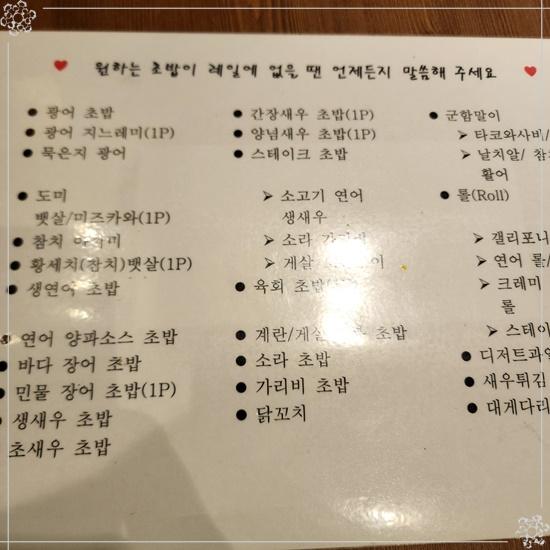 원하는 초밥이 레일에 없을 땐 언제든지 말씀해 주세요
● 광어 초밥
● 광어 지느레미(1P)
● 묵은지 광어
● 도미
뱃살/미즈카와(1P)
● 참치
● 황세치(참치)뱃살(1P)
● 생연어 초밥
● 연어 양파소스 초밥
● 바다 장어 초밥
● 민물 장어 초밥(1P)
● 생새우 초밥
초새우 초밥
● 간장새우 초밥(1P)
● 양념새우 초밥(1P)
● 스테이크 초밥
➤ 소고기 연어
생새우
➤ 소라
➤ 게살
● 육회
● 계란/게살 초밥
● 소라 초밥
● 가리비 초밥
● 닭꼬치
● 군함말이
➤ 타코와사비/
➤ 날치알/
활어
● 롤(Roll)
➤ 캘리포니
➤ 연어 롤/
➤ 크레미
롤
➤ 스테이
● 디저트과일
● 새우튀김
● 대게다리